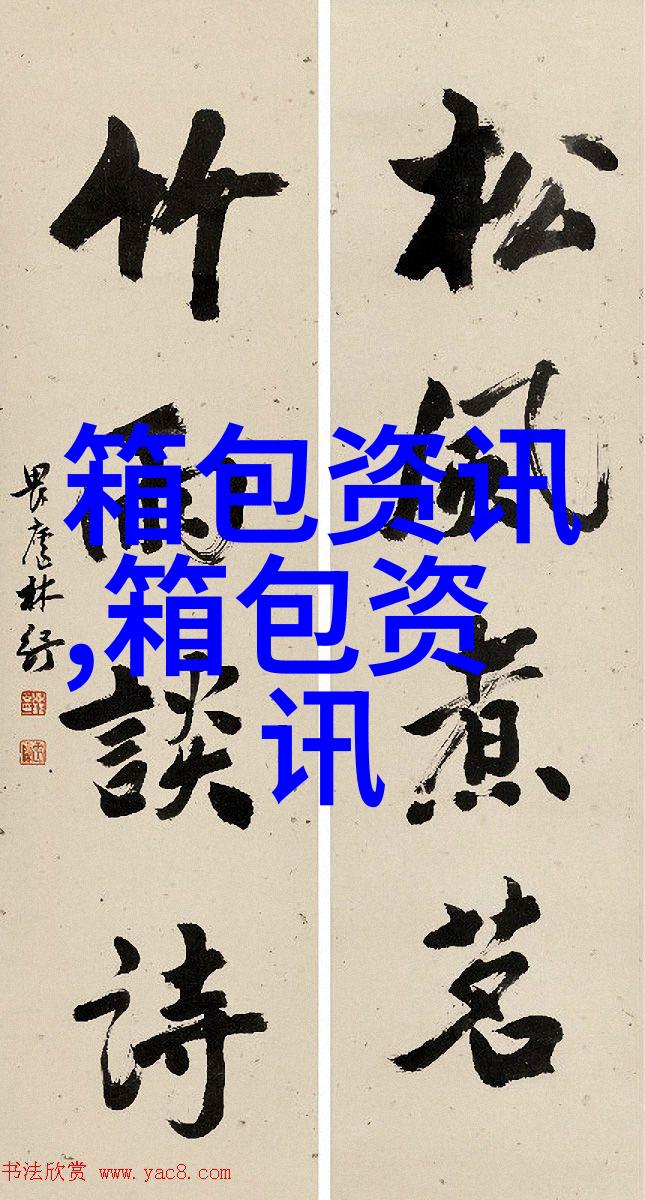 松風煮茗
竹雨談詩
畏廬林紓
箱包资讯
,箱包资
讯
书法欣赏 www.yac8.com